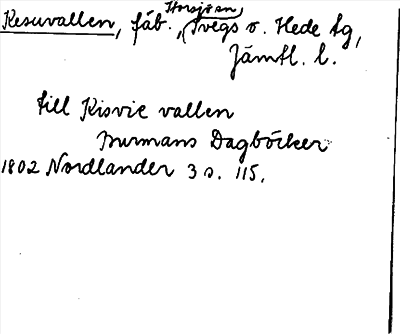 Storsjön,
Kesuvallen, fäb., Svegs o. Hede tg,
Jämtl. l.
till Kisvie vallen
Burmans Dagböcker
1802 Nordlander 3 s. 115.